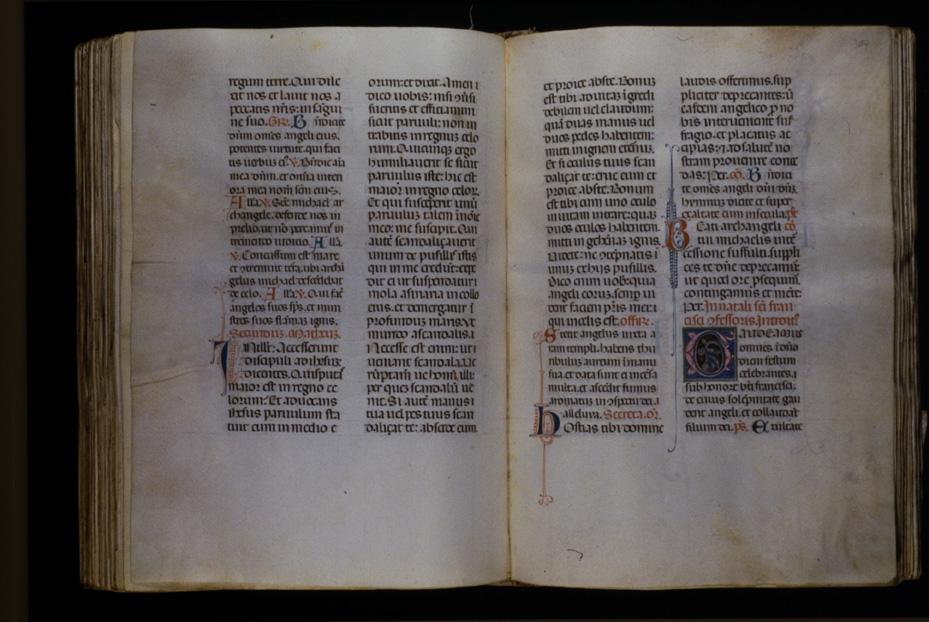 regum terre. Qui dile
xit nos et lavit nos a
peccatis nr̄is: in sangui
ne suo. Gr̄. B n̄dicite
dn̄m om̄es angeli eius.
potentes virtute. qui faci
tis verbū eī. V. Bn̄dic aīa
mea dn̄m. et om̄ia interi
ora mea nom̄ sc̄m eius.
Alla. V. Sc̄e michael ar
changele. defende nos in
prelio: ut nō pereamus in
tremendo iuditio. Alla.
V. Concussum est mare
et contremuit terra. ubi archā
gelus michael descendebat
de celo. Alla. V. Qui facit
angelos suos sp̄s. et mini
stros suos flāmas ignis.
Secundum. Matheum.
In illo t. Accesserunt
discipuli ad ih̄esum
dicentes. Quis putas
maior est in regno ce
lorum? Et advocans
ihesus parvulum. sta
tuit eum in medio e
orum: et dixit. Amen
dico vobis: nisi 9v̄si
fueritis et efficiamini
sicut parvuli: non in
trabitis in regnum celo
rum. Quicumque ergo
humiliaverit se sicut
parvulus iste: hic est
maior in regno celor̄.
Et qui susceperit unū
parvulum talem in noīe
meo: me suscipit. Qui
autē scandalizaverit
unum de pusillis istis
qui in me credūt: expe
dit ei ut suspendatur
mola asinaria in collo
eius. et demergatur ī
profundum maris. Ve
mundo a scandalis.
Necesse est enim: ut
veniant scandala. Ve
rūptam̄ ve homī illi:
per quem scandalū ve
nit. Si autē manus
tua vel pes tuus scan
dalizat te: abscide eum
et proice abs te. Bonum
est tibi ad vitam īgredi
debilem vel claudum:
quā duas manus vel
duos pedes habentem
mitti in ignem eternū.
Et si oculus tuus scan
dalizat te: erue eum et
proice abs te. Bonum
est tibi cum uno oculo
in vitam intrare: quā
duos oculos habentem
mitti in gehennā ignis.
Videte: ne contēpnatis ī
unum ex his pusillis.
Dico enim vob: quia
angeli eorum. semp̄ vi
dent faciem pr̄is mei:
qui in celis est. Offer̄.
Stetit angelus iuxta a
ram templi. habens thu
ribulum aureum ī manu
sua. et data sunt ei incēsa
multa. et ascendit fumus
aromatum in 9spectu dei.
alleluya. Secreta. Or̄.
Hostias tibi domine
laudis offerimus. sup
pliciter deprecantes: ut
easdem angelico p̄ no
bis interveniente suf
fragio. et placatus ac
cipias. et ad salutē no
stram provenire conce
das. Per. Cō. B n̄dici
te om̄es angeli dn̄i dn̄m.
hymnum dicite et super
exaltate eum in secula. P̄
Beati archangeli cō.
tui michaelis inter
cessione suffulti. suppli
ces te dn̄e deprecamur.
ut quod ore p̄sequim̄.
contingamus et mente.
Per. In natali sc̄i fran
cisci 9fessoris. Introit.
Gaudeamus
omnes ī dn̄o
diem festum
celebrantes.
sub honore bt̄i francisci.
de cuius solēpnitate gau
dent angeli. et collaudāt
filium dei. p̄s. Exultate